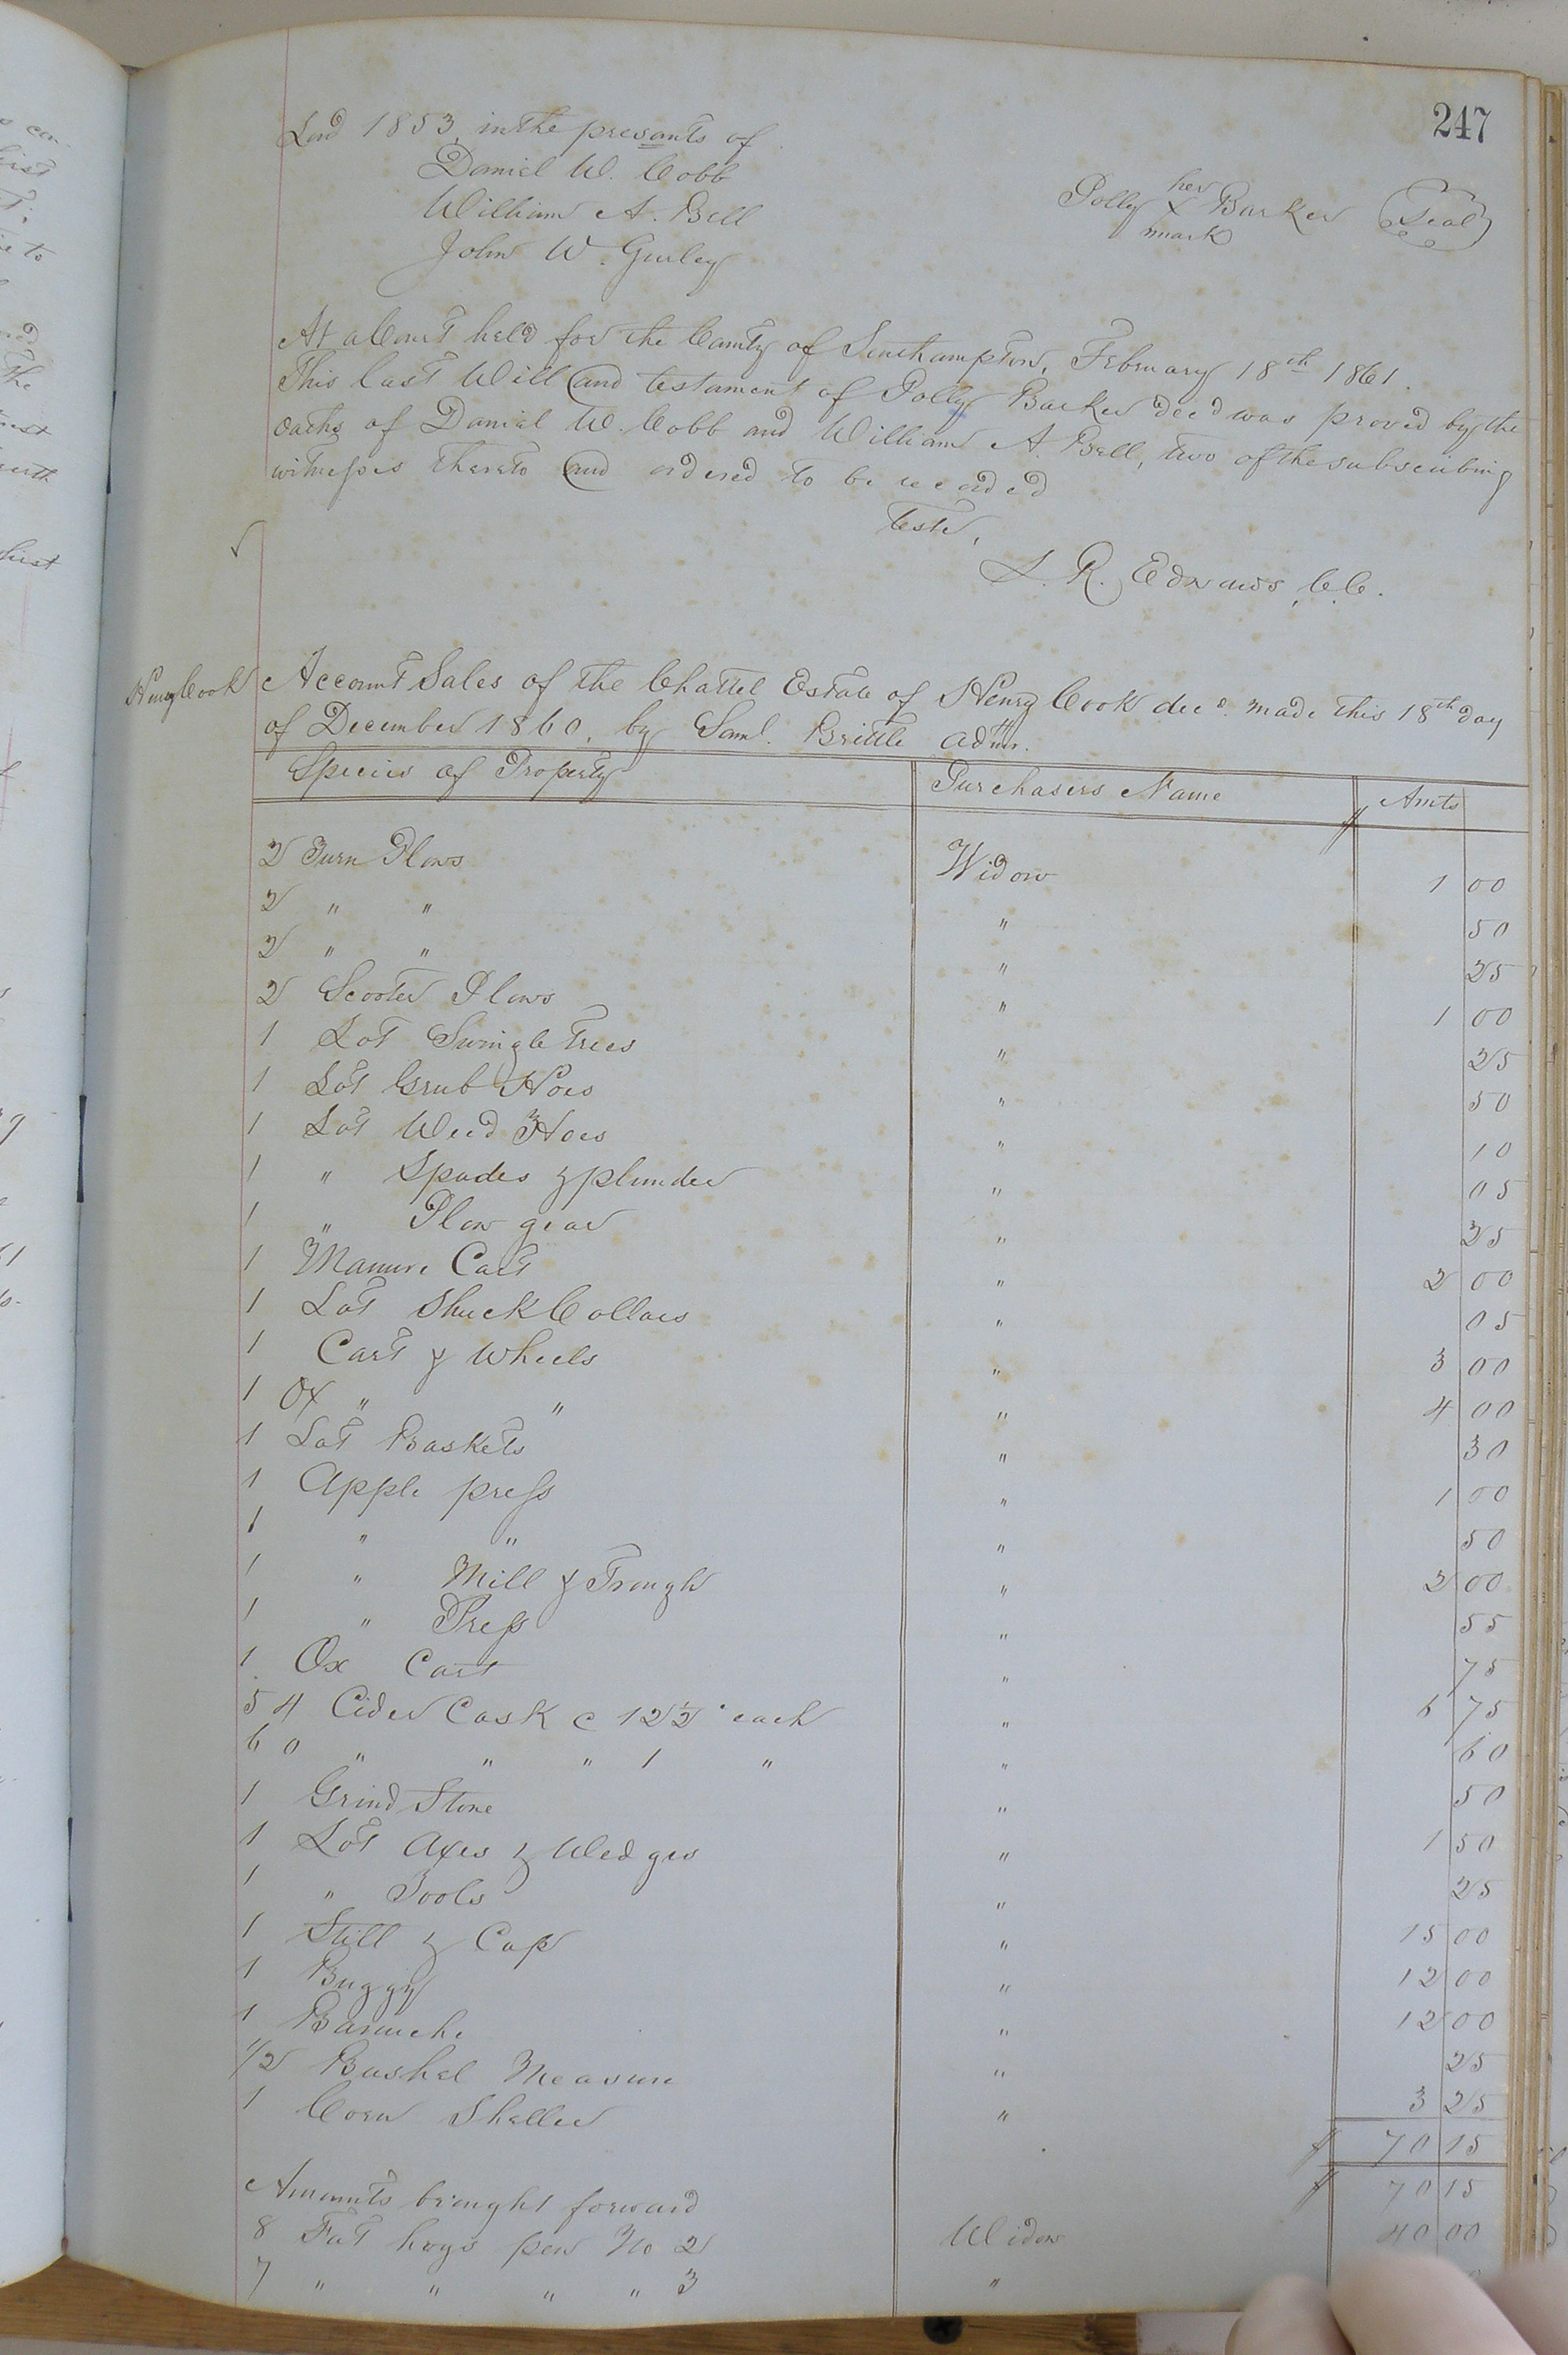 247
Lord 1853, in the presants of
Daniel W. Cobb
William A. Bell
John W. Gurley
her
Polly X Barker Seal
mark
At a Court held for the County of Southampton, February 18th 1861.
This last Will and testament of Polly Barker decd was proved by the
oaths of Daniel W. Cobb and William A. Bell, two of the subscribing
witnesses thereto and ordered to be recorded
Teste,
L. R. Edwards, C.C.
Henry Cook
Account Sales of the Chattel Estate of Henry Cook decd. made this 18th day
of December 1860, by Saml. Brittle admr.
Species of Property Purchasers Name Amts
2 Turn Plows Widow 1 00
2 " " " 50
2 " " " 25
2 Scooter Plows " 1 00
1 Lot Swingle Trees " 25
1 Lot Grub Hoes " 50
1 Lot Weed Hoes " 10
1 " Spades & plunder " 05
1 " Plow gear " 25
1 Manure Cart " 2 00
1 Lot Shuck Collars " 05
1 Cart & Wheels " 3 00
1 Ox " " " 4 00
1 Lot Baskets " 30
1 Apple press " 1 00
1 " " " 50
1 " Mill & Trough " 2 00
1 " Press " 55
1 Ox Cart " 75
54 Cider Cask c 12½ each " 6 75
60 " " " 1 " " 60
1 Grind Stone " 50
1 Lot Axes & Wedges " 1 50
1 " Tools " 25
1 Still & Cap " 15 00
1 Buggy " 12 00
1 Barouche " 12 00
1/2 Bushel Measure " 25
1 Corn Sheller " 3 25
$ 70 15
Amounts brought forward $ 70 15
8 Fat hogs pen No 2 Widow 40 00
7 " " " " 3 "